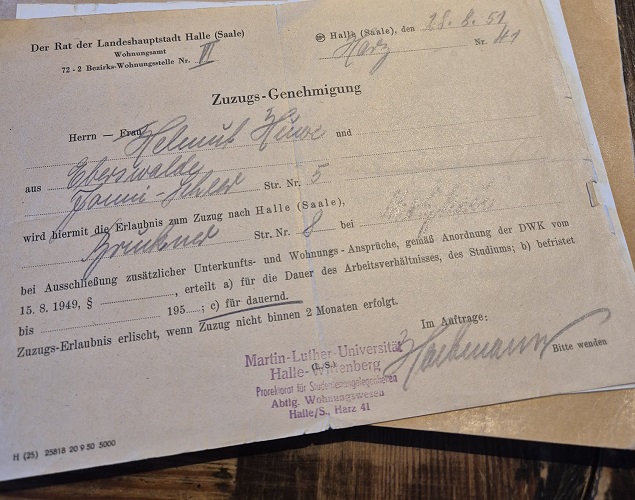 Der Rat der Landeshauptstadt Halle (Saale)
Wohnungsamt
72 - 2 Bezirks-Wohnungsstelle Nr. VI
Halle (Saale), den 28. 8. 51
Harz Nr. 41
Zuzugs-Genehmigung
Herrn — Frau Helmut und
aus Eberswalde
Str. Nr. 5
wird hiermit die Erlaubnis zum Zuzug nach Halle (Saale),
Str. Nr. 8 bei
bei Ausschließung zusätzlicher Unterkunfts- und Wohnungs-Ansprüche, gemäß Anordnung der DWK vom
15. 8. 1949, § , erteilt a) für die Dauer des Arbeitsverhältnisses, des Studiums; b) befristet
bis 195 ; c) für dauernd.
Zuzugs-Erlaubnis erlischt, wenn Zuzug nicht binnen 2 Monaten erfolgt.
Im Auftrage:
(L. S.)
Bitte wenden
Martin-Luther-Universität
Halle-Wittenberg
Prorektorat für Studentenangelegenheiten
Abtlg. Wohnungswesen
Halle/S., Harz 41
H (25) 25818 20 9 50 5000